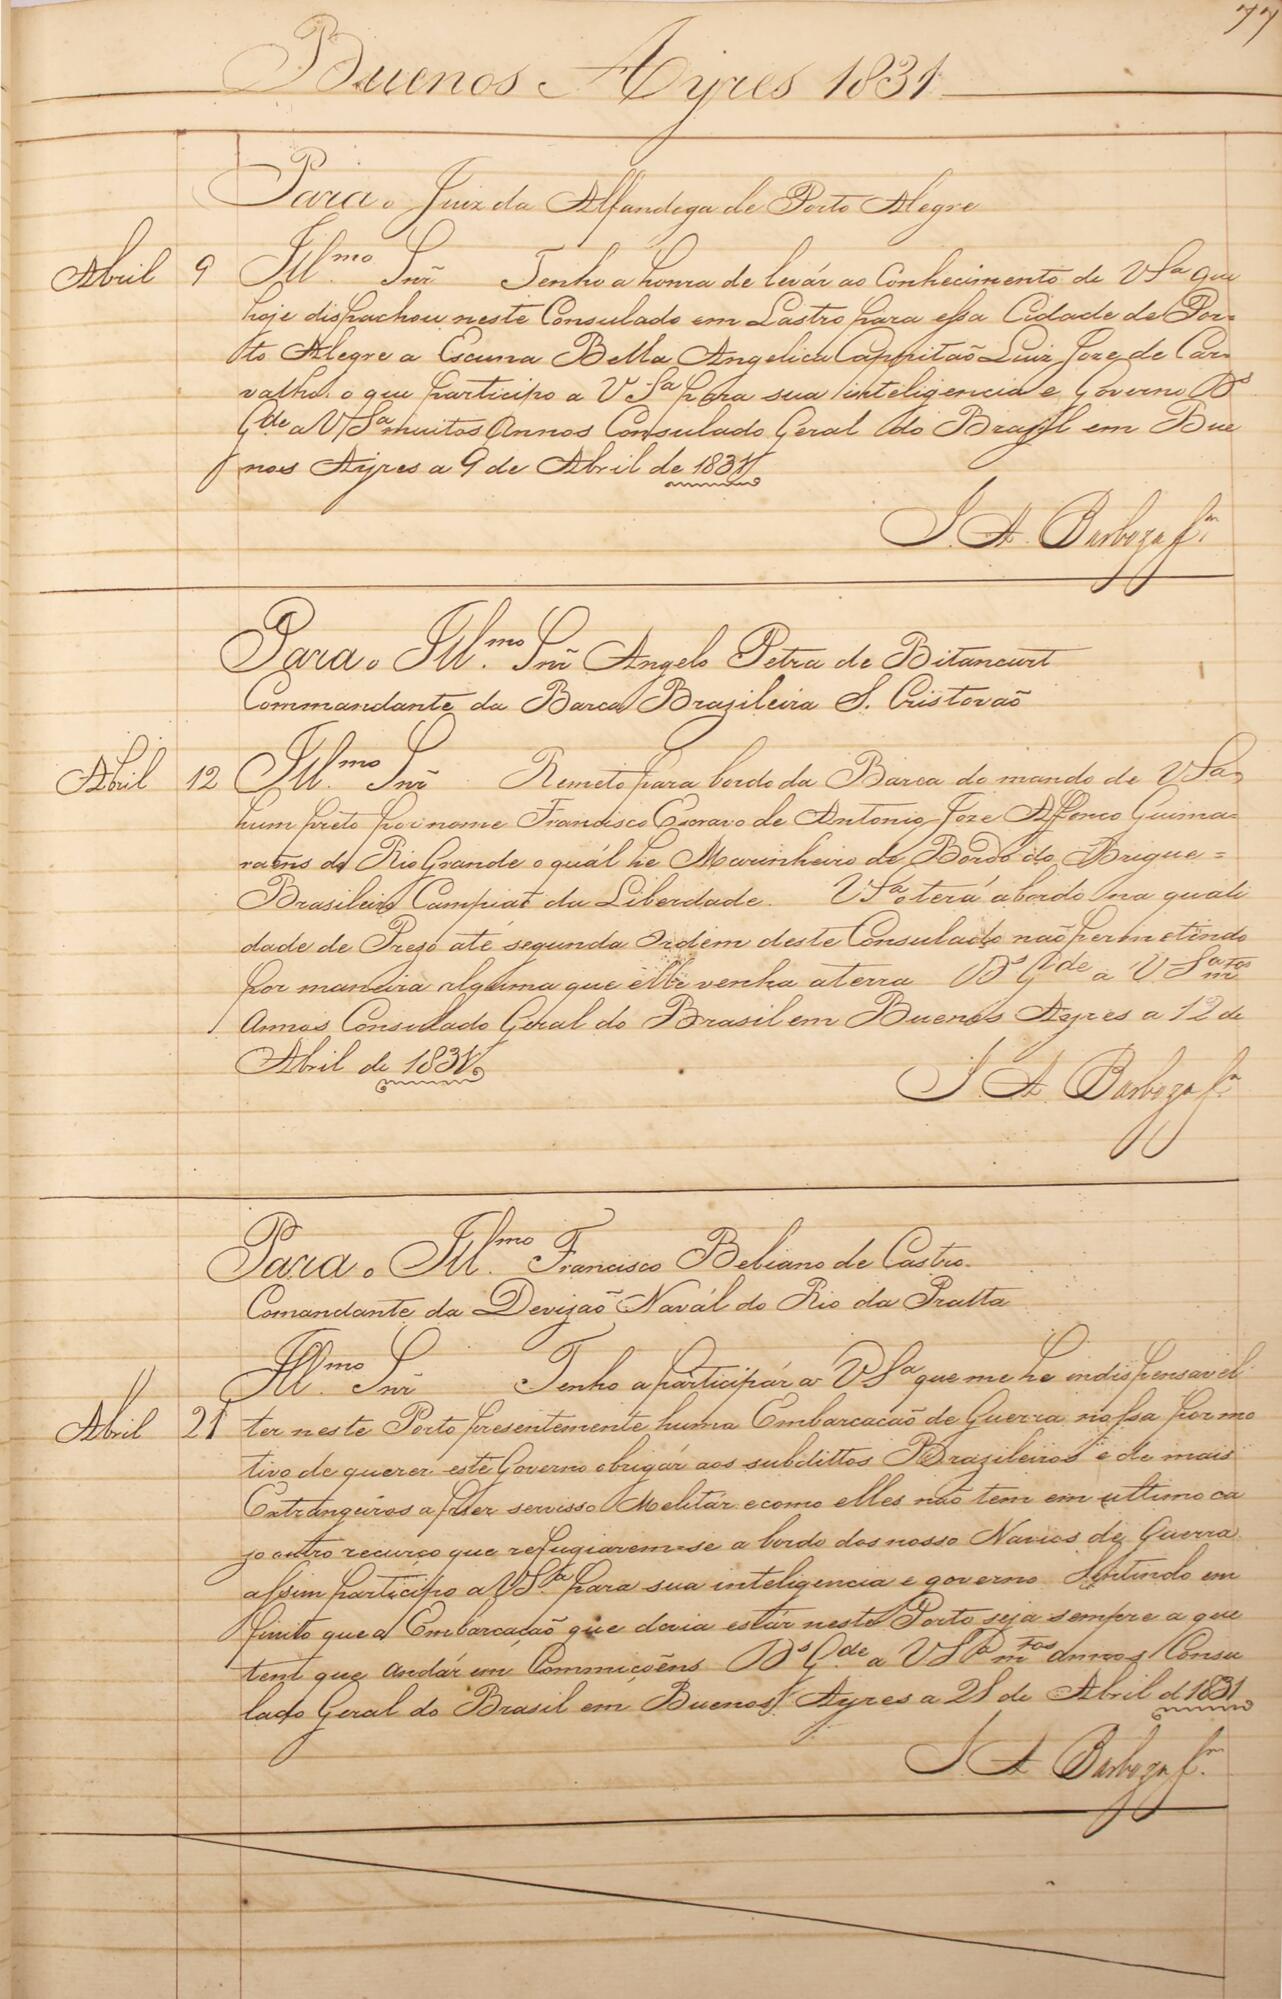 77
Buenos Ayres 1831
Para o Juiz da Alfandega de Porto Alegre
Abril 9 Illmo. Snr̃ Tenho a honra de levár ao Conhecimento de VSa que
hoje dispachou neste Consulado em Lastro para essa Cidade de Por=
to Alegre a Escuna Bella Angelica Cappitaõ Luiz Joze de Car=
valho. o que participo a VSa para sua inteligencia e Governo Ds
Gde a VSa muitos Annos Consulado Geral do Brasil em Bue
nos Ayres a 9 de Abril de 1831
J. A. Barboza
Para o Illmo. Snr̃ Angelo Petra de Bitancurt
Commandante da Barca Brazileira S. Cristovaõ
Abril 12 Illmo. Snr̃ Remeto para bordo da Barca do mando de VSa
hum preto por nome Francisco Escravo de Antonio Joze Affonco Guima=
raẽns do Rio Grande o quál he Marinheiro de Bordo do Brigue=
Brasileiro Campiaõ da Liberdade. VSa o terá abordo na quali
dade de Prezo até segunda Ordem deste Consulado naõ permetindo
por maneira alguma que elle venha a terra Ds Gde a VSa mtos
Annos Consulado Geral do Brasil em Buenos Ayres a 12 de
Abril de 1831
J. A. Barboza
Para o Illmo. Francisco Bebiano de Castro.
Comandante da Devizaõ Navál do Rio da Pratta
Illmo. Snr̃ Tenho a participár a VSa que me he indispensavel
Abril 21 ter neste Porto presentemente huma Embarcacaõ de Guerra nossa por mo
tivo de querer este Governo obrigár aos subdittos Brazileiros e de mais
Extrangeiros a fazer servisso Melitár. e como elles naõ tem em ultimo ca
zo outro recurço que refugiarem-se a bordo dos nosso Navios de Guerra
assim participo a VSa. para sua inteligencia e governo Sentindo em
finito que a Embarcacaõ que devia estár neste Porto seja sempre a que
tem que andár em Commicoẽns Ds Gde a VSa mtos annos Consu
lado Geral do Brasil em Buenos Ayres a 21 de Abril d 1831
J A Barboza